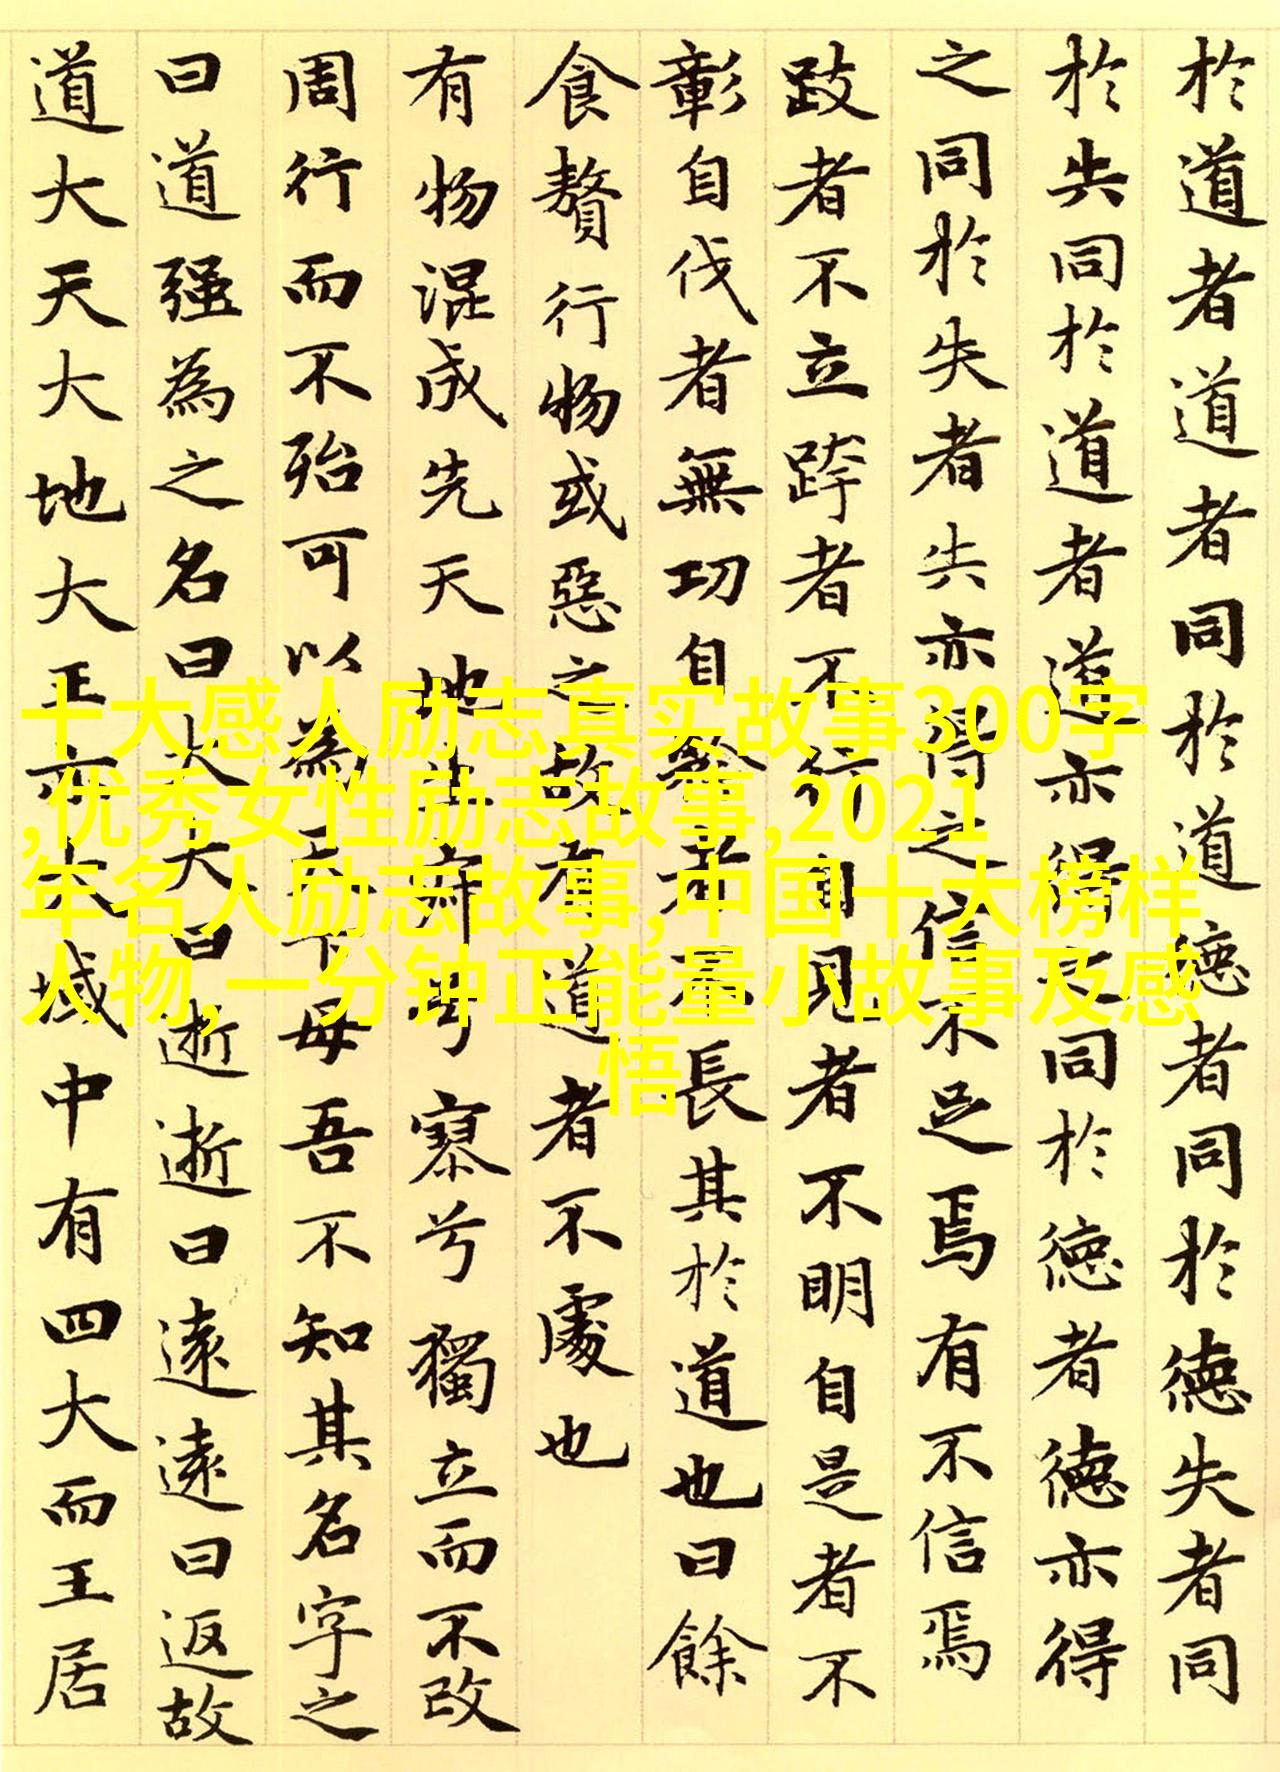 於道者道者同於道德者同於德失者同
於失同於道者道亦得之同於德者德亦得
之同於失者失亦得之信不足焉有不信焉
跂者不立跨者不行自見者不明自是者不
彰自伐者無功自矜者不長其於道也曰餘
食贅行物或惡之故有道者不處也
有物混成先天地生寂兮寥兮獨立而不改
周行而不殆可以為天下母吾不知其名字之
曰道强為之名曰大大曰逝逝曰遠遠曰返故
道大天大地大王亦大域中有四大而王居
十大感人励志真实故事300字
,优秀女性励志故事,2021
年名人励志故事,中国十大榜样
人物,一分钟正能量小故事及感
悟